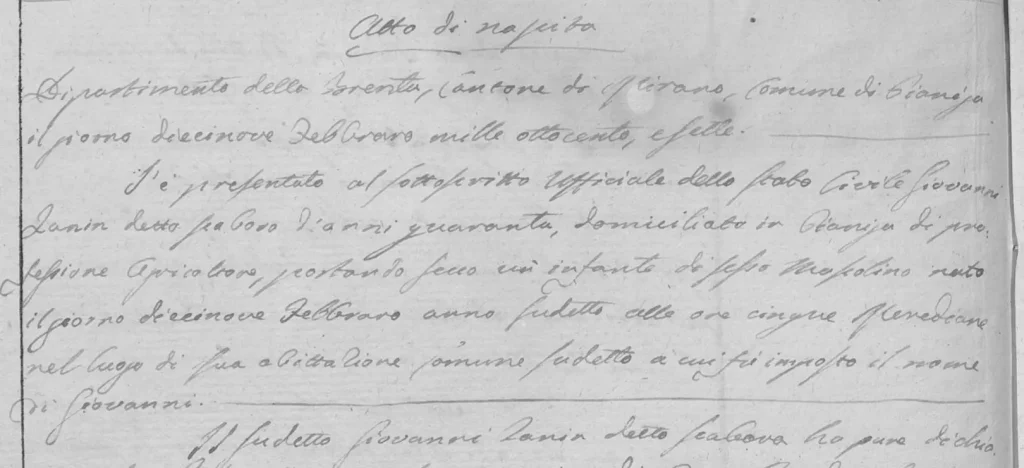 Atto di nascita
Dipartimento della Brenta, Cantone di Mirano, Comune di Pianiga
il giorno diecinove Febbraro mille ottocento, e sette.
S'è presentato al sottoscritto Ufficiale dello stato Civile Giovanni
Zanin detto d'anni quaranta, domiciliato in Pianiga di pro-
fessione Agricoltore, portando seco un infante di sesso Mascolino nato
il giorno diecinove Febbraro anno sudetto alle ore cinque Merediane
nel luogo di sua abittazione Comune sudetto a cui fù imposto il nome
di Giovanni.
Il sudetto Giovanni Zanin detto ha pure dichia-